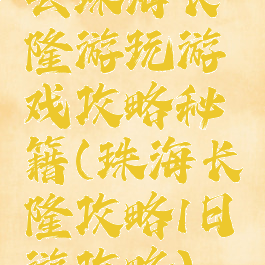 去珠海长
隆游玩游
戏攻略秘
籍(珠海长
隆攻略1日
游攻略)